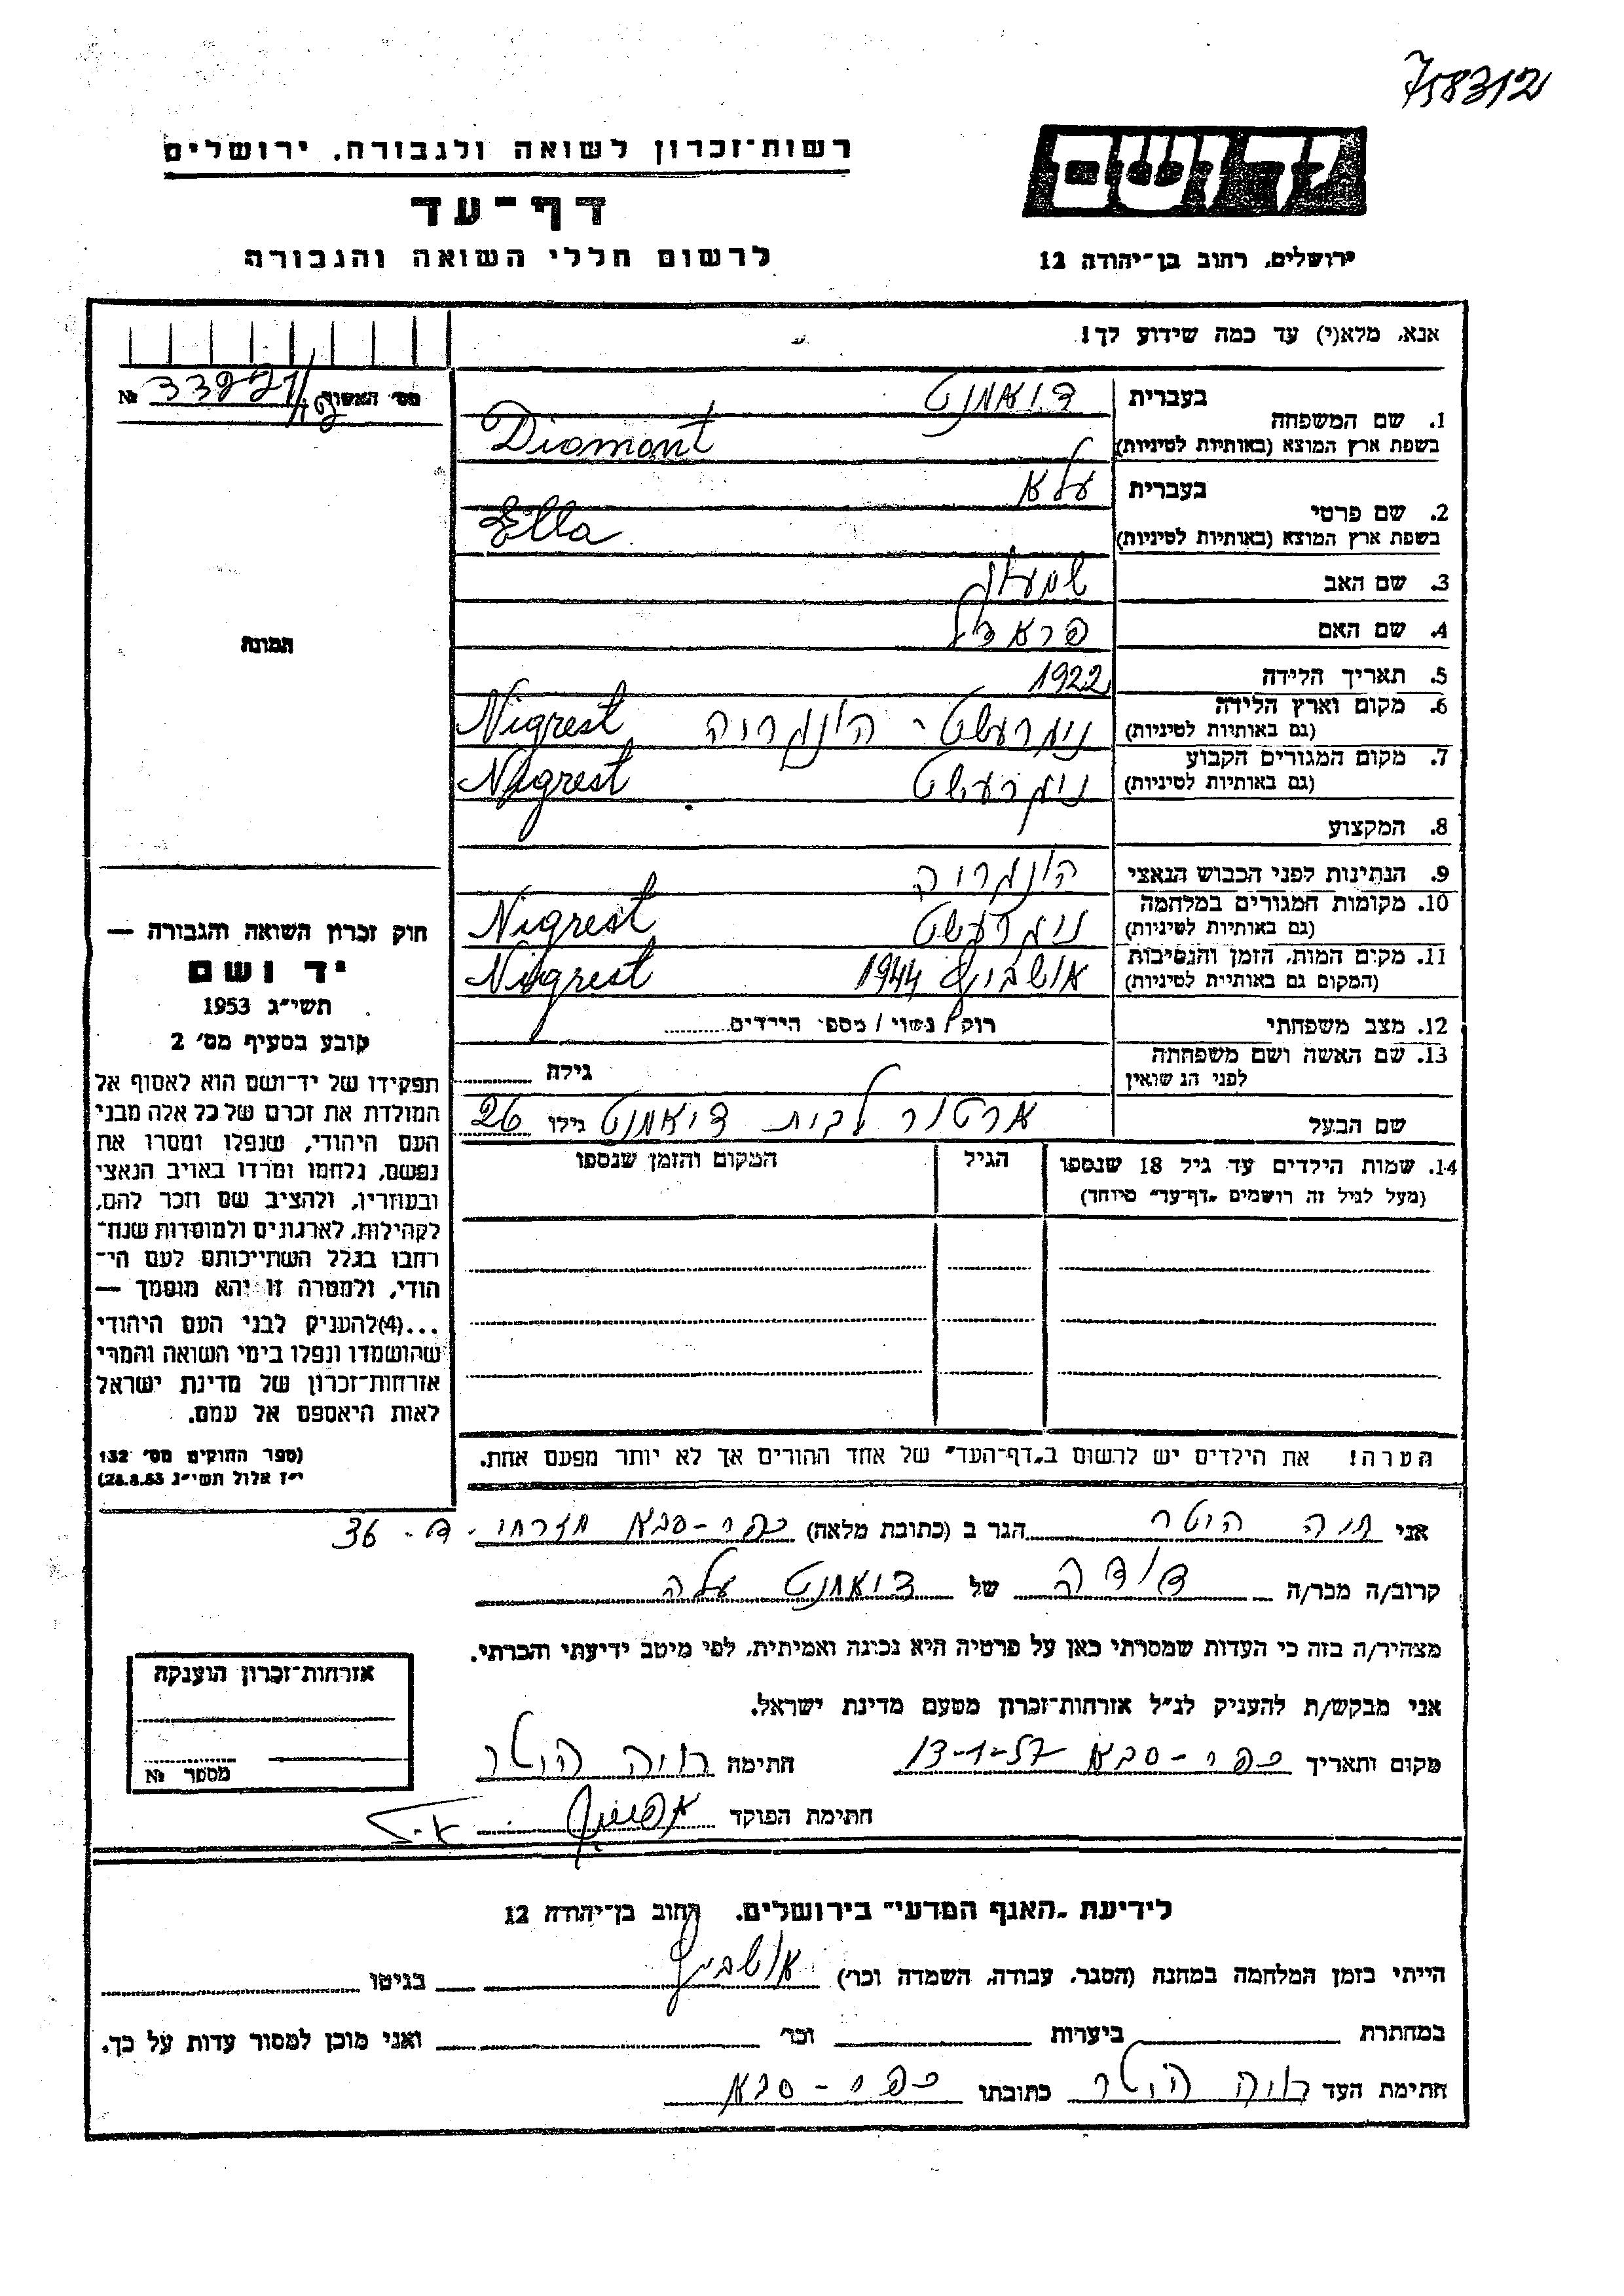 758312
רשות־זכרון לשואה ולגבורה, ירושלים
דף־עד
לרשום חללי השואה והגבורה
יד ושם
ירושלים, רחוב בן־יהודה 12
אנא, מלא(י) עד כמה שידוע לך!
מס׳ האשור № 33821/
1. שם המשפחה
בעברית דיאמנט
בשפת ארץ המוצא (באותיות לטיניות) Diamant
2. שם פרטי
בעברית עלא
בשפת ארץ המוצא (באותיות לטיניות) Ella
3. שם האב שמעון
4. שם האם פראדיל
5. תאריך הלידה 1922
6. מקום וארץ הלידה
(גם באותיות לטיניות) ניגרעשט - הונגריה Nigrest
7. מקום המגורים הקבוע
(גם באותיות לטיניות) ניגרעשט Nigrest
8. המקצוע
9. הנתינות לפני הכבוש הנאצי הונגריה
10. מקומות המגורים במלחמה
(גם באותיות לטיניות) ניגרעשט Nigrest
11. מקום המות, הזמן והנסיבות
(המקום גם באותיות לטיניות) אושביץ 1944 Nigrest
12. מצב משפחתי רוק / נשוי / מספר הילדים
13. שם האשה ושם משפחתה
לפני הנשואין גילה
שם הבעל ארטור לבית דיאמנט גילו 26
14. שמות הילדים עד גיל 18 שנספו
(מעל לגיל זה רושמים „דף־עד״ מיוחד)
הגיל
המקום והזמן שנספו
תמונה
חוק זכרון השואה והגבורה —
יד ושם
תשי״ג 1953
קובע בסעיף מס׳ 2
תפקידו של יד־ושם הוא לאסוף אל
המולדת את זכרם של כל אלה מבני
העם היהודי, שנפלו ומסרו את
נפשם, נלחמו ומרדו באויב הנאצי
ובעוזריו, ולהציב שם וזכר להם,
לקהילות, לארגונים ולמוסדות שנח־
רבו בגלל השתייכותם לעם הי־
הודי, ולמטרה זו יהא מוסמך —
...(4)להעניק לבני העם היהודי
שהושמדו ונפלו בימי השואה והמרי
אזרחות־זכרון של מדינת ישראל
לאות היאספם אל עמם.
(ספר החוקים מס׳ 132
י״ז אלול תשי״ג 28.8.53)
הערה! את הילדים יש לרשום ב„דף־העד״ של אחד ההורים אך לא יותר מפעם אחת.
אני חוה הוטר הגר ב (כתובת מלאה) כפר-סבא מזרחי - ד - 36
קרוב/ה מכר/ה דודה של דיאמנט עלה
מצהיר/ה בזה כי העדות שמסרתי כאן על פרטיה היא נכונה ואמיתית, לפי מיטב ידיעתי והכרתי.
אני מבקש/ת להעניק לנ״ל אזרחות־זכרון מטעם מדינת ישראל.
מקום ותאריך כפר-סבא 13-1-57 חתימה חוה הוטר
חתימת הפוקד
אזרחות־זכרון הוענקה
מספר №
לידיעת „האגף המדעי״ בירושלים, רחוב בן־יהודה 12
הייתי בזמן המלחמה במחנה (הסגר, עבודה, השמדה וכו׳) אושביץ בגיטו
במחתרת ביערות וכו׳ ואני מוכן למסור עדות על כך.
חתימת העד חוה הוטר כתובתו כפר-סבא